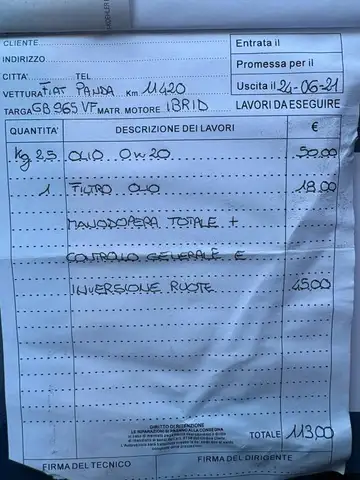 CLIENTE
Entrata il
INDIRIZZO
Promessa per il
CITTA' TEL
VETTURA FIAT PANDA Km 11420
Uscita il 24-06-21
TARGA GB965VF MATR. MOTORE IBRID
LAVORI DA ESEGUIRE
QUANTITA' DESCRIZIONE DEI LAVORI €
Kg 2,5 OLIO 0W20 50,00
1 FILTRO OLIO 18,00
MANODOPERA TOTALE +
CONTROLLO GENERALE E
INVERSIONE RUOTE 45,00
DIRITTO DI RITENZIONE
LE RIPARAZIONI SI PAGANO ALLA CONSEGNA
TOTALE 113,00
FIRMA DEL TECNICO FIRMA DEL DIRIGENTE